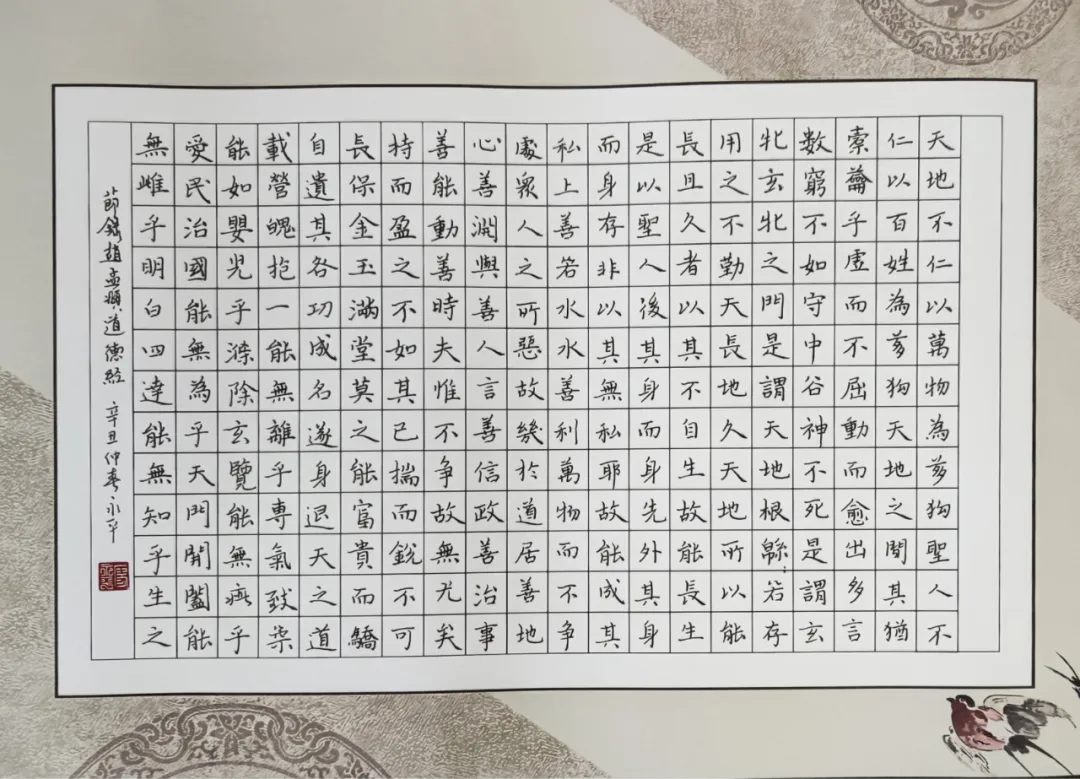 天地不仁以萬物為芻狗聖人不
仁以百姓為芻狗天地之閒其猶
橐籥乎虛而不屈動而愈出多言
數窮不如守中谷神不死是謂玄
牝玄牝之門是謂天地根緜〻若存
用之不勤天長地久天地所以能
長且久者以其不自生故能長生
是以聖人後其身而身先外其身
而身存非以其無私耶故能成其
私上善若水水善利萬物而不争
處衆人之所惡故幾於道居善地
心善淵與善人言善信政善治事
善能動善時夫惟不争故無尤矣
持而盈之不如其已揣而銳不可
長保金玉滿堂莫之能富貴而驕
自遺其各功成名遂身退天之道
載營魄抱一能無離乎専氣致柒
能如嬰児乎滌除玄覽能無疵乎
愛民治國能無為乎天門開闔能
無雌乎明白四達能無知乎生之
節錄趙孟頫道德經 辛丑仲春永平